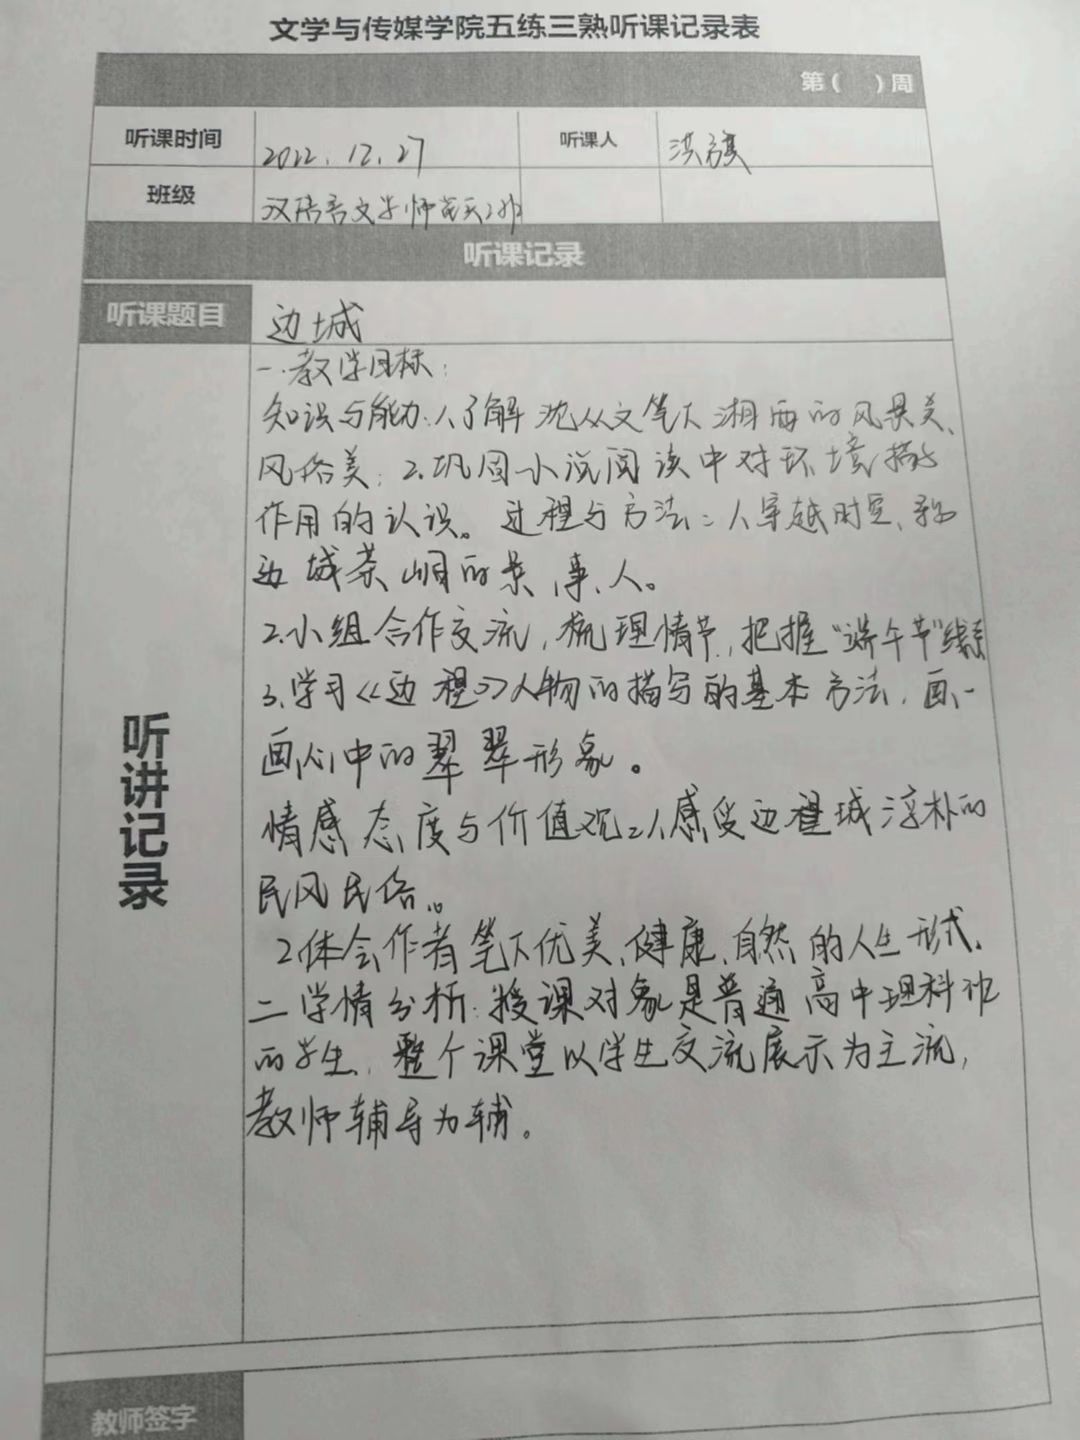 文学与传媒学院五练三熟听课记录表
第（ ）周
听课时间 2022.12.27 听课人 洪旗
班级 汉语言文学师范天2班
听课记录
听课题目 边城
一.教学目标：
知识与能力:1.了解沈从文笔下湘西的风景美、
风俗美；2.巩固小说阅读中对环境描写
作用的认识。过程与方法：1.穿越时空、
边城茶峒的景、事、人。
2.小组合作交流，梳理情节，把握“端午节”线索
3.学习《边程》人物的描写的基本方法，画一
画心中的翠翠形象。
情感态度与价值观：1.感受边城淳朴的
民风民俗。
2.体会作者笔下优美、健康、自然的人生形式、
二学情分析:授课对象是普通高中理科班
的学生，整个课堂以学生交流展示为主流，
教师辅导为辅。
听讲记录
教师签字